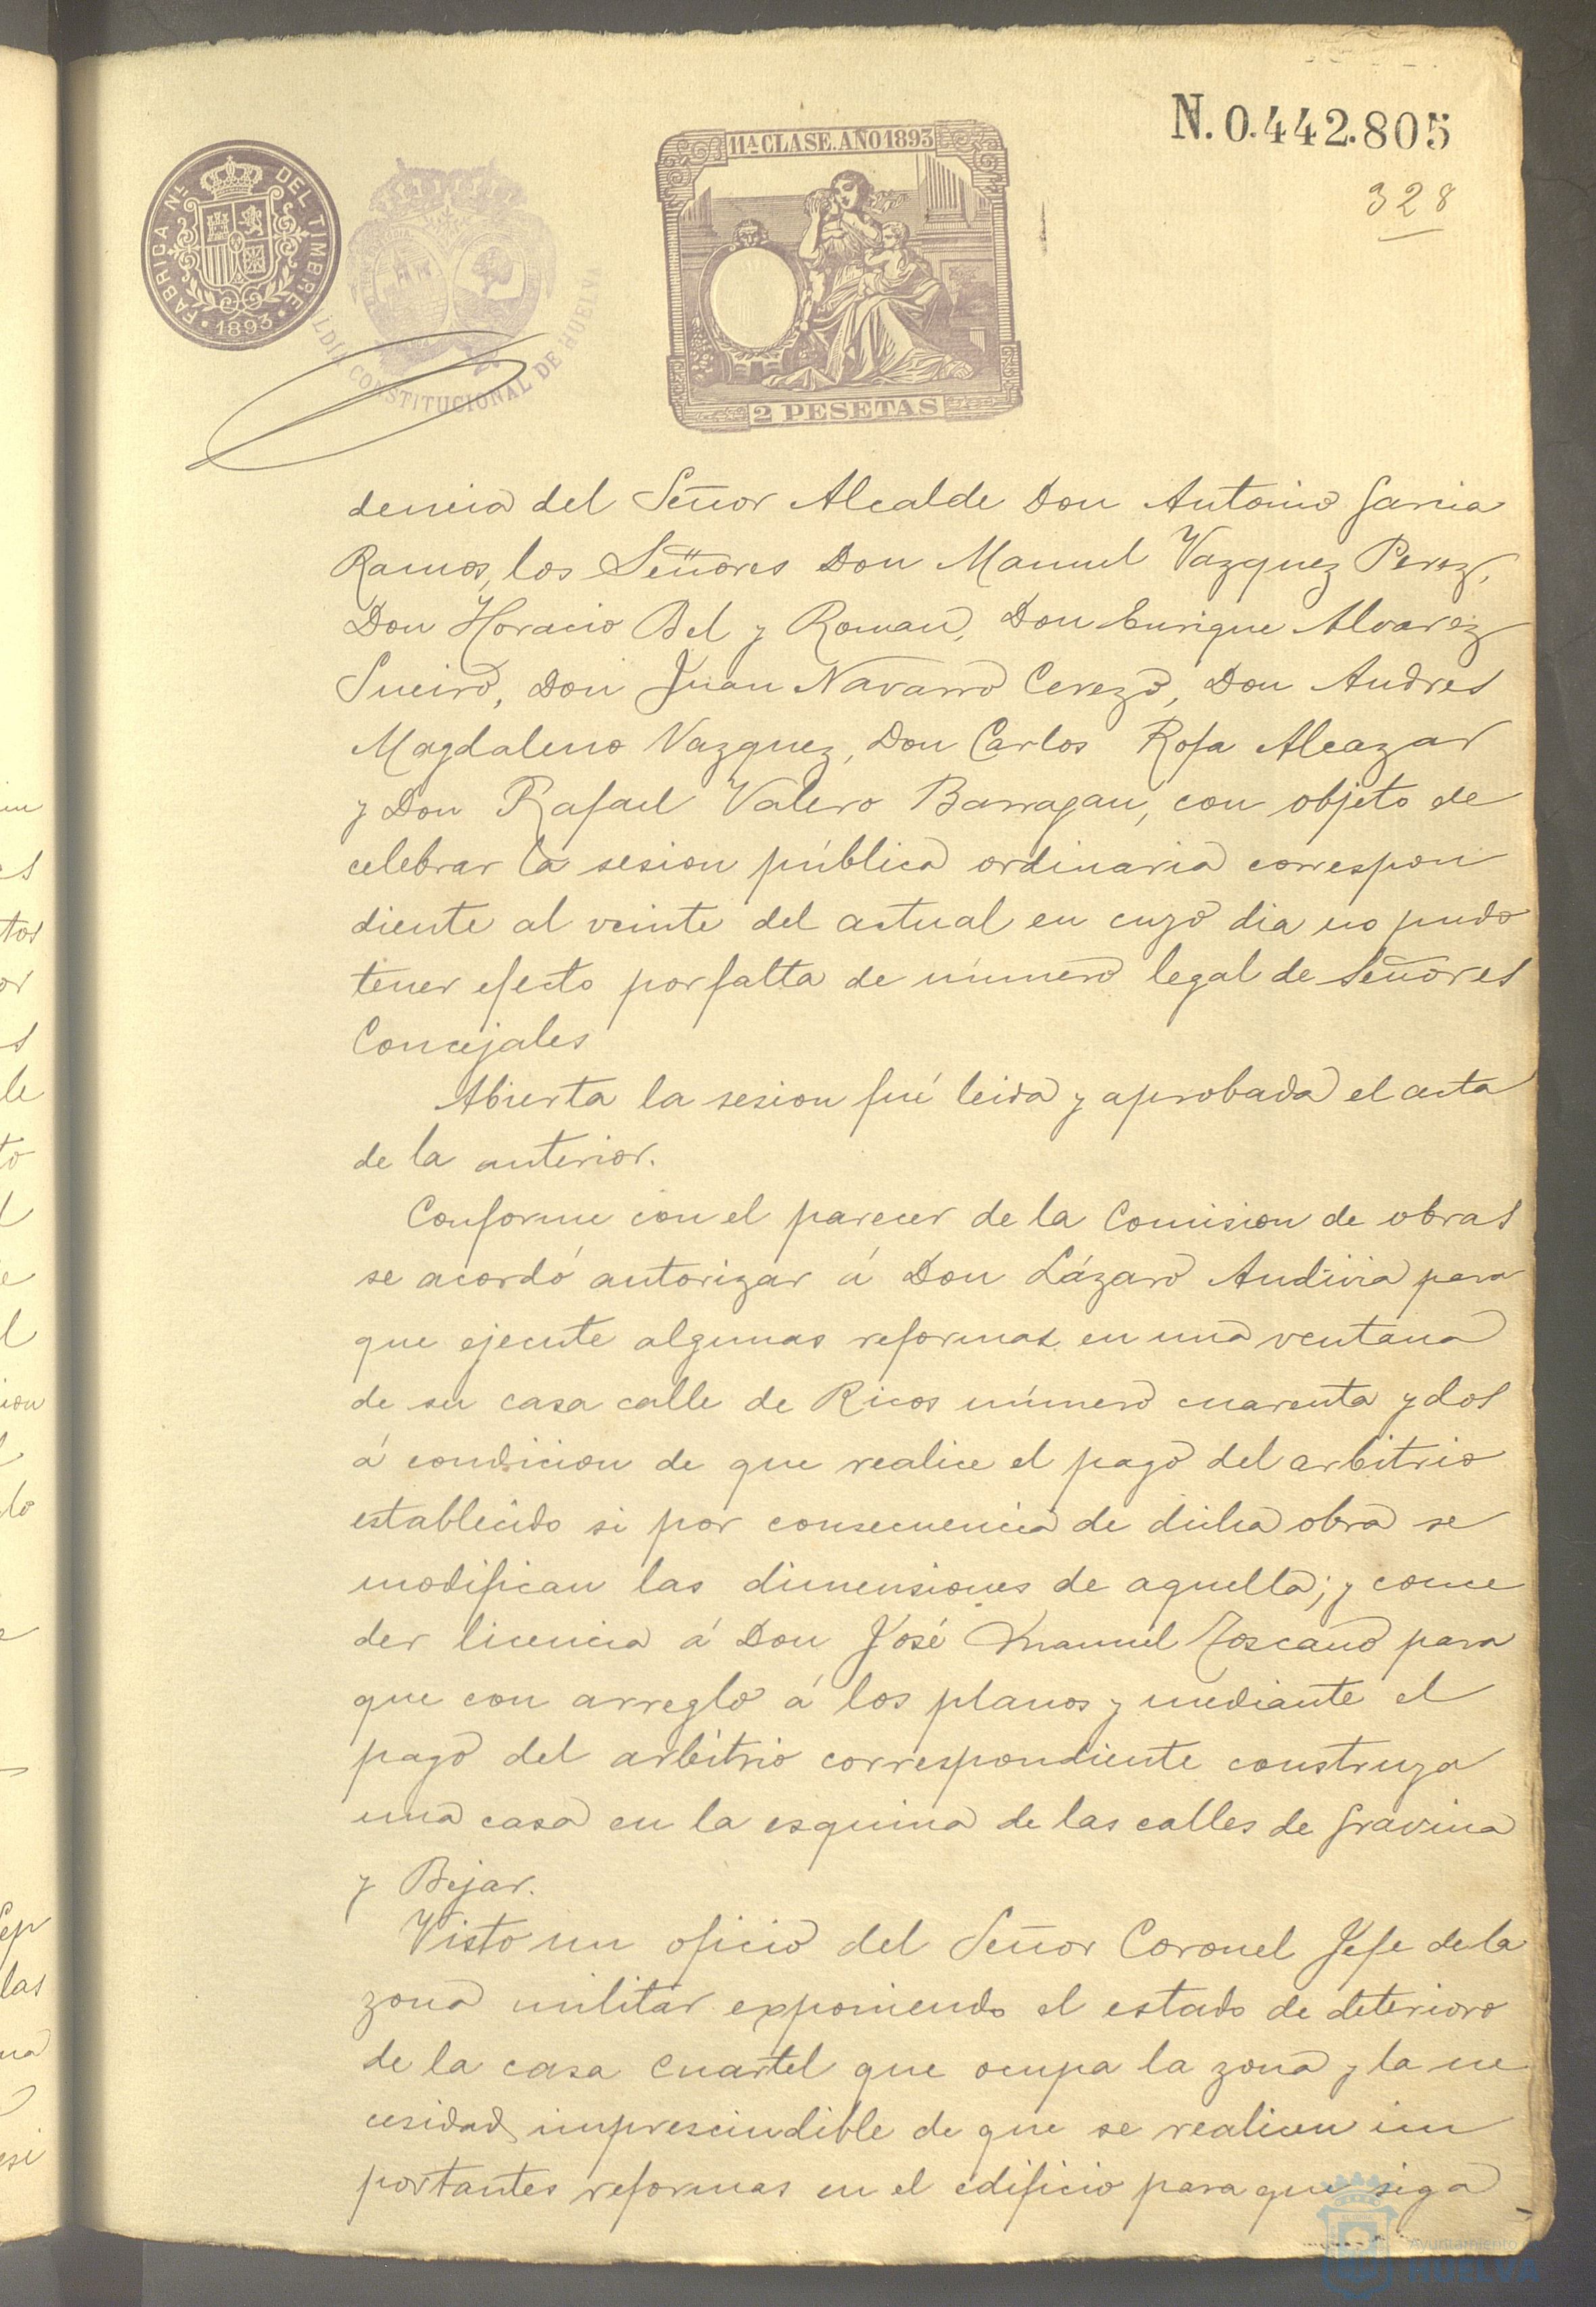 N. 0.442.805
328
11ª CLASE. AÑO 1893
FABRICA Nᴸ DEL TIMBRE
1893
ALDIA CONSTITUCIONAL DE HUELVA
2 PESETAS
dencia del Señor Alcalde Don Antonio Garcia
Ramos, los Señores Don Manuel Vazquez Perez,
Don Horacio Bel y Roman, Don Enrique Alvarez
Sueiro, Don Juan Navarro Cerezo, Don Andres
Magdaleno Vazquez, Don Carlos Rofa Alcazar
y Don Rafael Valero Barragan, con objeto de
celebrar la sesion pública ordinaria correspon
diente al veinte del actual en cuyo dia no pudo
tener efecto por falta de número legal de Señores
Concejales
Abierta la sesion fué leida y aprobada el acta
de la anterior.
Conforme con el parecer de la Comision de obras
se acordó autorizar á Don Lázaro Andivia para
que ejecute algunas reformas en una ventana
de su casa calle de Ricos número cuarenta y dos
á condicion de que realice el pago del arbitrio
establecido si por consecuencia de dicha obra se
modifican las dimensiones de aquella; y conce
der licencia á Don José Manuel Toscano para
que con arreglo á los planos y mediante el
pago del arbitrio correspondiente construya
una casa en la esquina de las calles de Gravina
y Bejar.
Visto un oficio del Señor Coronel Jefe de la
zona militar exponiendo el estado de deterioro
de la casa Cuartel que ocupa la zona y la ne
cesidad imprescindible de que se realicen im
portantes reformas en el edificio para que siga
Ayuntamiento
HUELVA